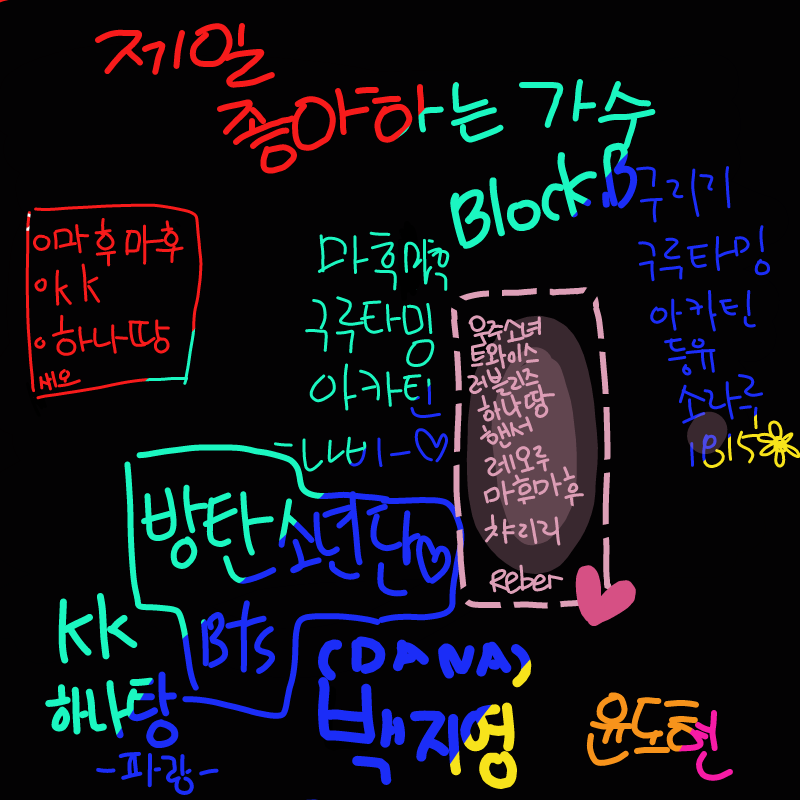 제일
좋아하는 가수
Block B
구리기
구루타밍
아카틴
등유
소라루
마후마후
kk
하나땅
세오
구루타밍
아카틴
우주소녀
트와이스
러블리즈
하나땅
핸서
레오루
마휴마후
챠리리
Reber
방탄소년단♡
Bts
kk
하나탕
-파랑-
(DANA)
백지영
윤도현